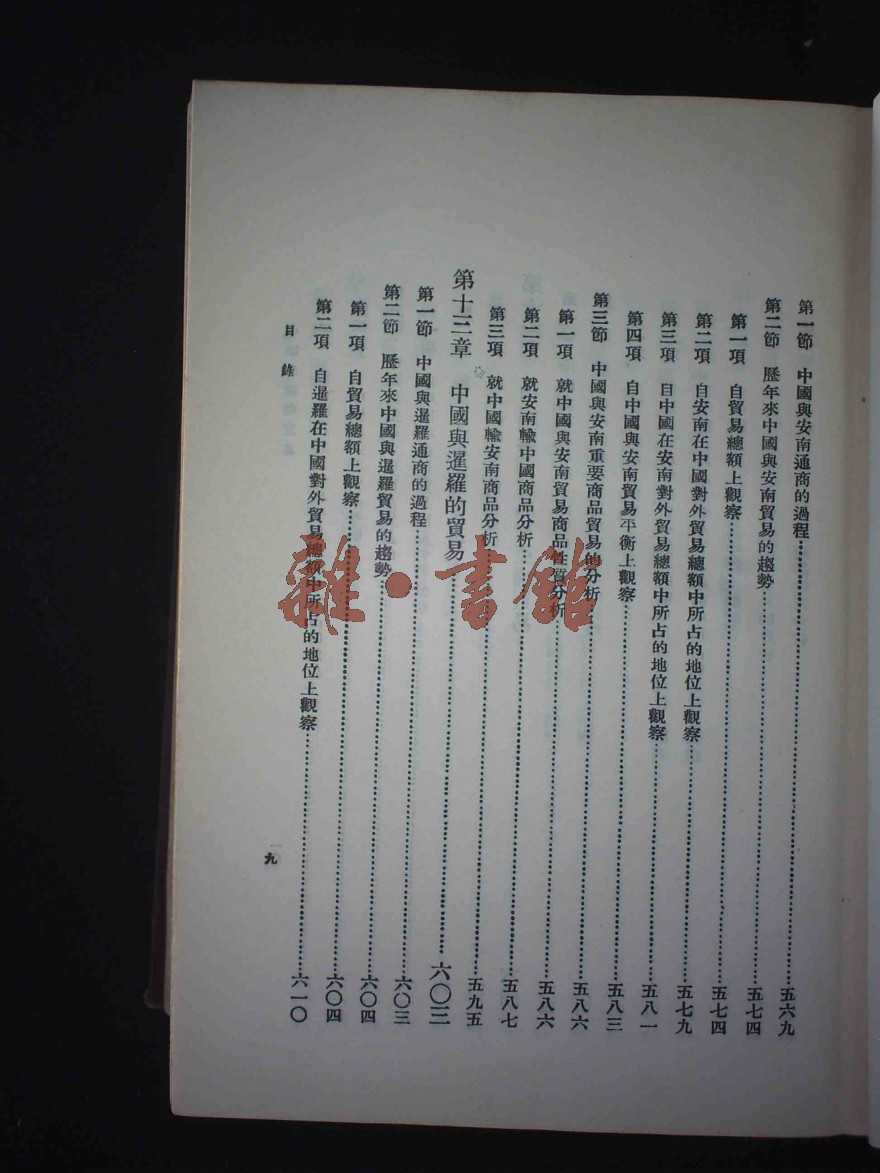 第一節　中國與安南通商的過程……五六九
第二節　歷年來中國與安南貿易的趨勢……五七四
第一項　自貿易總額上觀察……五七四
第二項　自安南在中國對外貿易總額中所占的地位上觀察……五七九
第三項　自中國在安南對外貿易總額中所占的地位上觀察……五八一
第四項　自中國與安南貿易平衡上觀察……五八三
第三節　中國與安南重要商品貿易的分析……五八六
第一項　就中國與安南貿易商品性質分析……五八六
第二項　就安南輸中國商品分析……五八七
第三項　就中國輸安南商品分析……五九五
第十三章　中國與暹羅的貿易……六〇三
第一節　中國與暹羅通商的過程……六〇三
第二節　歷年來中國與暹羅貿易的趨勢……六〇四
第一項　自貿易總額上觀察……六〇四
第二項　自暹羅在中國對外貿易總額中所占的地位上觀察……六一〇
目錄
九
雜·書館